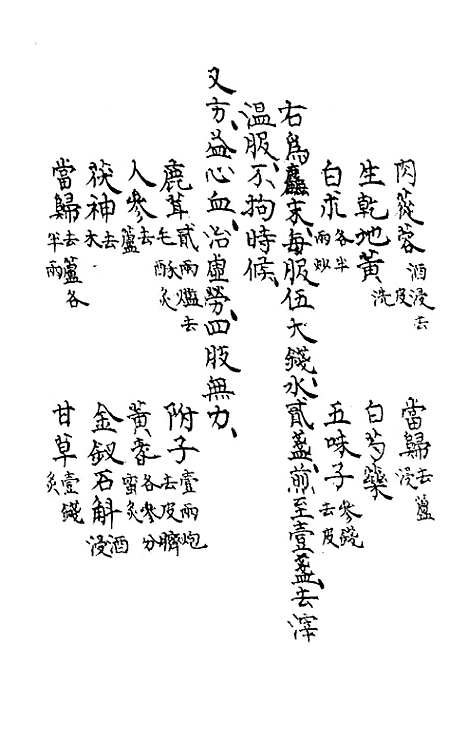 肉蓯蓉酒浸去皮洗　當歸去蘆浸
生乾地黃　白芍藥
白朮各半兩炒　五味子叄錢去皮
右爲麤末、每服伍大錢水、貳盞、煎至壹盞、去滓
溫服、不拘時候、
又方、益心血、治虛勞、四肢無力、
鹿茸貳兩爁去毛酥炙　附子壹兩炮去皮臍
人參去蘆　黃耆各叄分蜜炙
茯神去木　金釵石斛酒浸
當歸去蘆各半兩　甘草壹錢炙